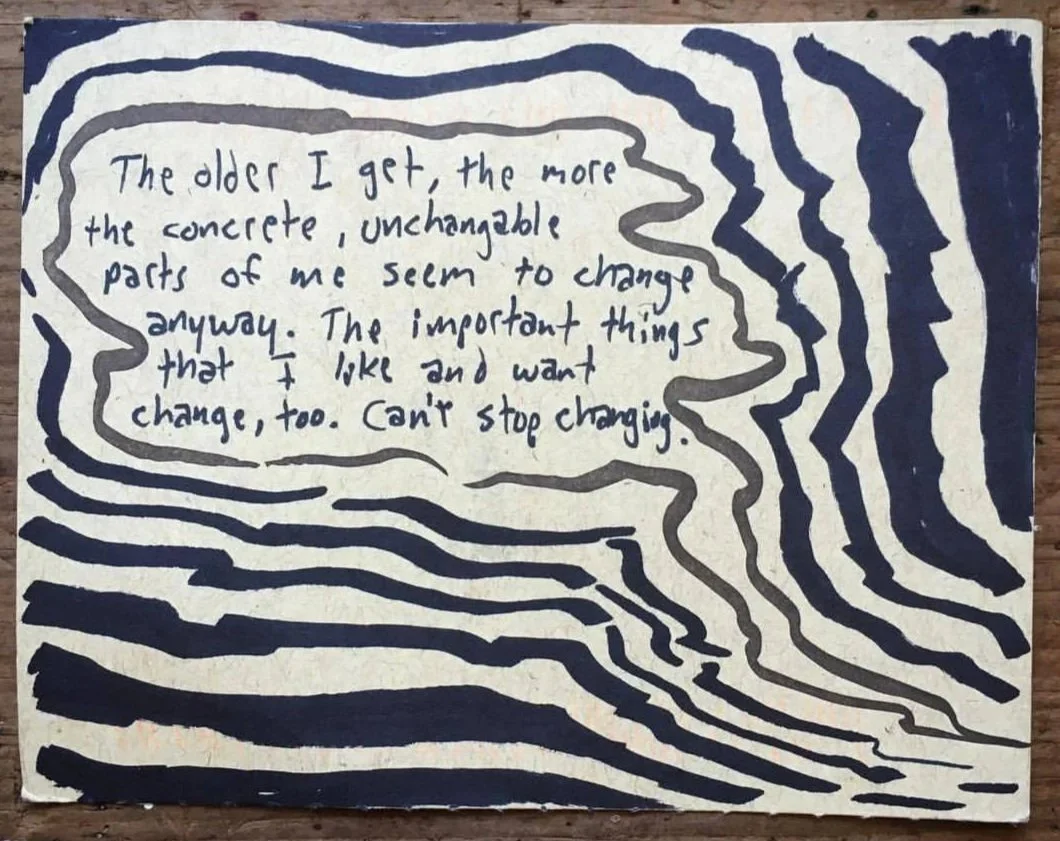 The older I get, the more
the concrete, unchangable
parts of me seem to change
anyway. The important things
that I like and want
change, too. Can't stop changing.